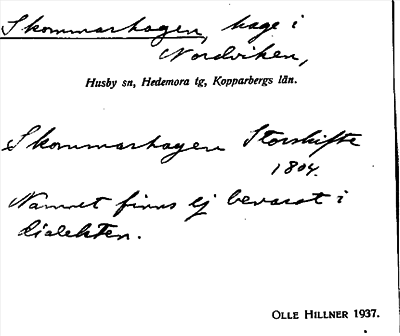 Skommarhagen, hage i
Nordviken,
Husby sn, Hedemora tg, Kopparbergs län.
Skommarhagen Storskifte
1804.
Namnet finns ej bevarat i
dialekten.
OLLE HILLNER 1937.